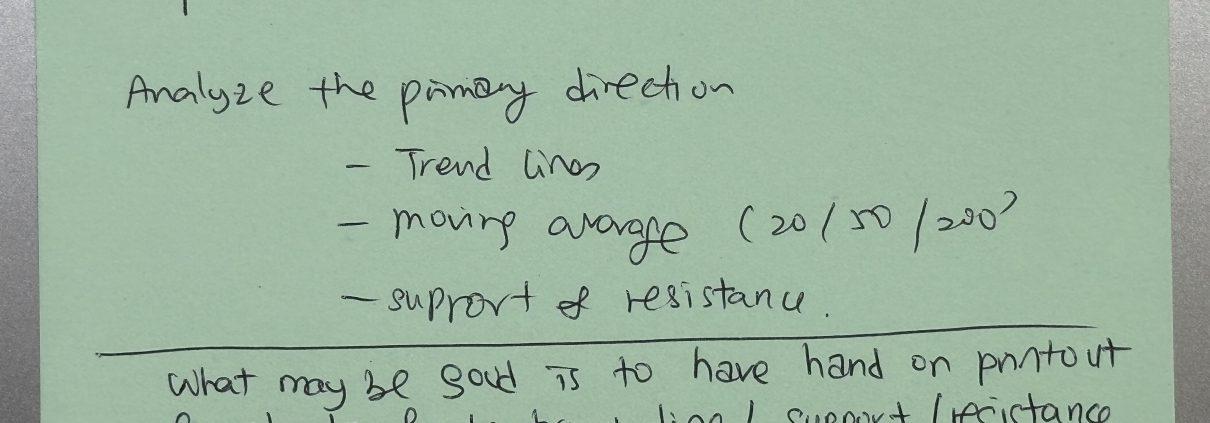 Analyze the primary direction
- Trend lines
- moving average (20/50/200)
- support & resistance.
What may be good is to have hand on printout
support / resistance